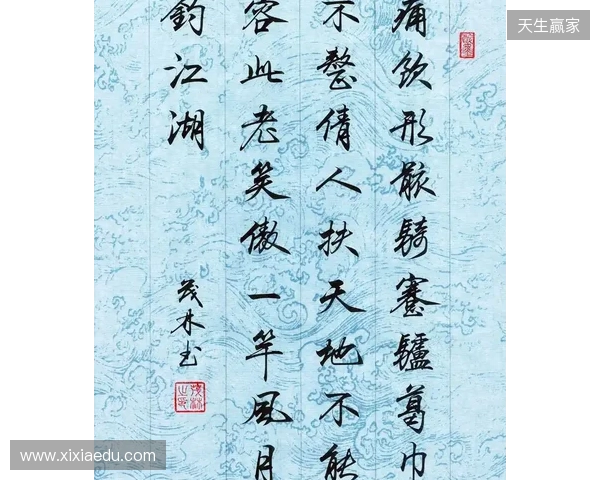 天生赢家
痛饮形骸騎蹇驢葛巾
不整倩人扶天地不能
容此老笑傲一竿風月
釣江湖
茂林书
www.xixiaedu.com